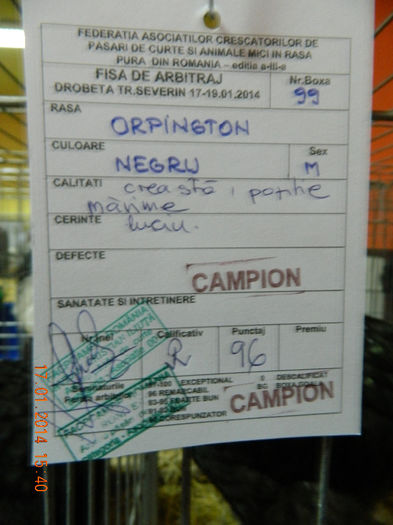 FEDERATIA ASOCIATIILOR CRESCATORILOR DE
PASARI DE CURTE SI ANIMALE MICI IN RASA
PURA DIN ROMANIA – editia a-III-a
FISA DE ARBITRAJ
Nr.Boxa
DROBETA TR.SEVERIN 17-19.01.2014
99
RASA
ORPINGTON
CULOARE
Sex
NEGRU
M
CALITATI creastă, poziție
mărime
CERINTE luciu.
DEFECTE
CAMPION
SANATATE SI INTRETINERE
Nr.inel
Calificativ
Punctaj
Premiu
R
96
Semnaturile
EXCEPTIONAL
0 DESCALIFICAT
96 REMARCABIL
BG BOXA GOALA
93-95 FOARTE BUN
CAMPION
17.01.2014 15:40